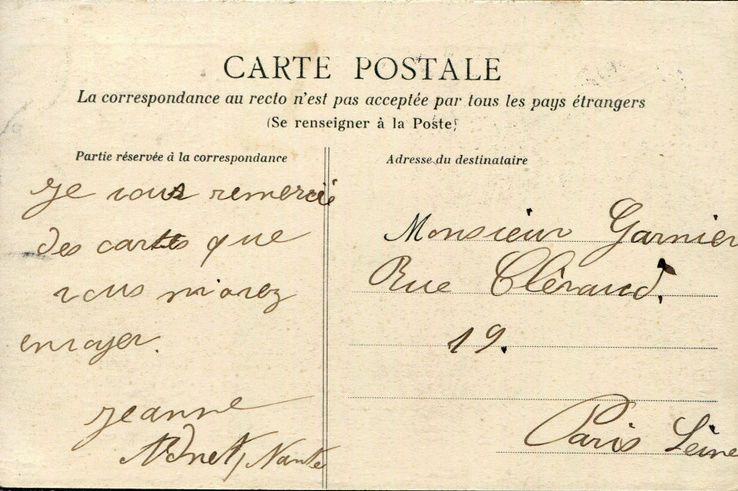 CARTE POSTALE
La correspondance au recto n'est pas acceptée par tous les pays étrangers
(Se renseigner à la Poste)
Partie réservée à la correspondance
je vous remercié
des cartes que
vous m'avez
envoyer.
jeanne
Nante
Adresse du destinataire
Monsieur Garnier
Rue
19.
Paris Seine